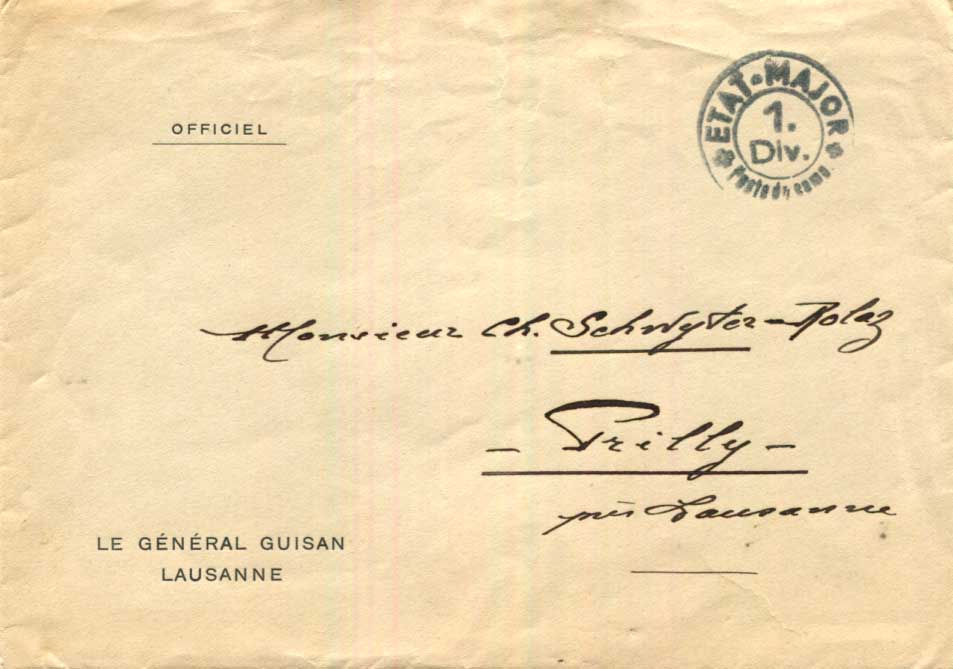 OFFICIEL
ETAT-MAJOR
1.
Div.
Poste de camp.
Monsieur Ch. Schwyter-Rolaz
- Prilly -
près Lausanne
LE GÉNÉRAL GUISAN
LAUSANNE